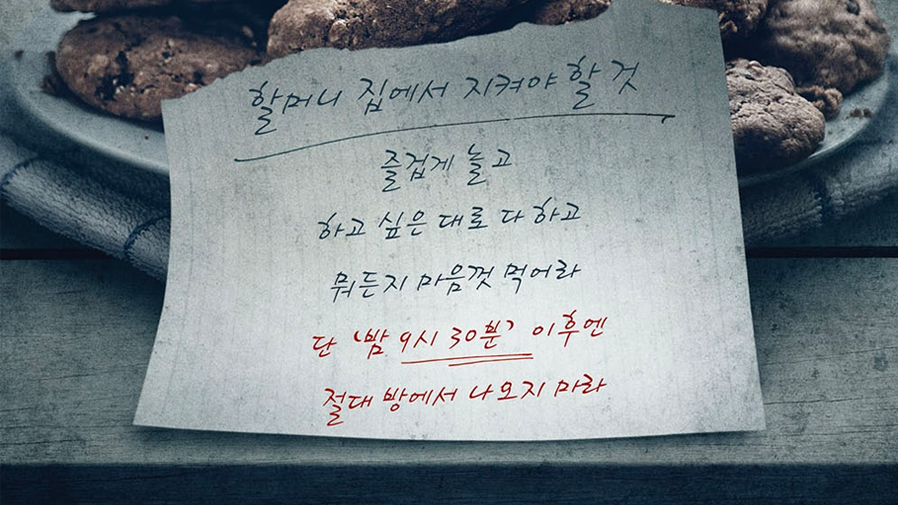 할머니 집에서 지켜야 할 것
즐겁게 놀고
하고 싶은 대로 다 하고
뭐든지 마음껏 먹어라
단 '밤 9시 30분' 이후엔
절대 방에서 나오지 마라